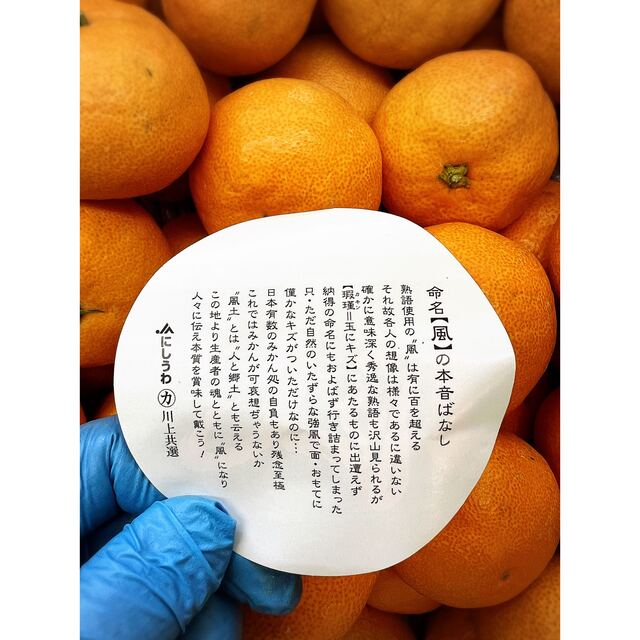 命名【風】の本音ばなし
熟語使用の〝風〟は有に百を超える
それ故各人の想像は様々であるに違いない
確かに意味深く秀逸な熟語も沢山見られるが
【瑕瑾＝玉にキズ】にあたるものに出遭えず
カキン
納得の命名にもおよばず行き詰まってしまった
只・ただ自然のいたずらな強風で面・おもてに
僅かなキズがついただけなのに…
日本有数のみかん処の自負もあり残念至極
これではみかんが可哀想ぢゃうないか
〝風土〟とは〝人と郷土〟とも云える
この地より生産者の魂とともに〝風〟になり
人々に伝え本質を賞味して戴こう！
JAにしうわ カ 川上共選